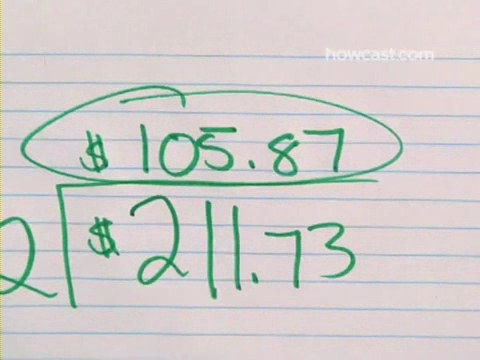 howcast.com
$105.87
2 $211.73